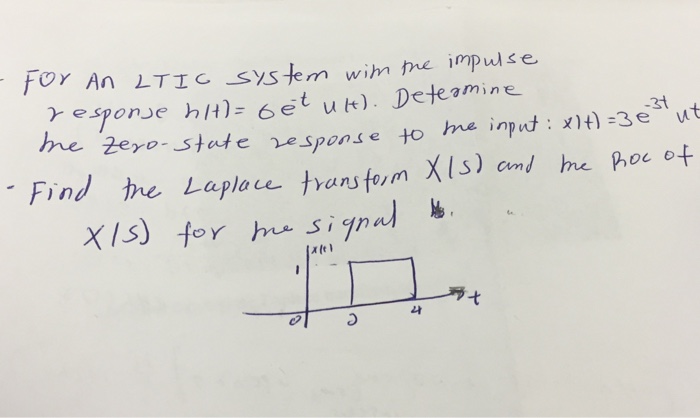 - For An LTIC system with the impulse
response h(t) = 6e^-t u(t). Determine
the zero-state response to the input: x(t) = 3e^-3t ut
- Find the Laplace transform X(s) and the Roc of
X(s) for the signal
x(t)
1
0 2 4 t